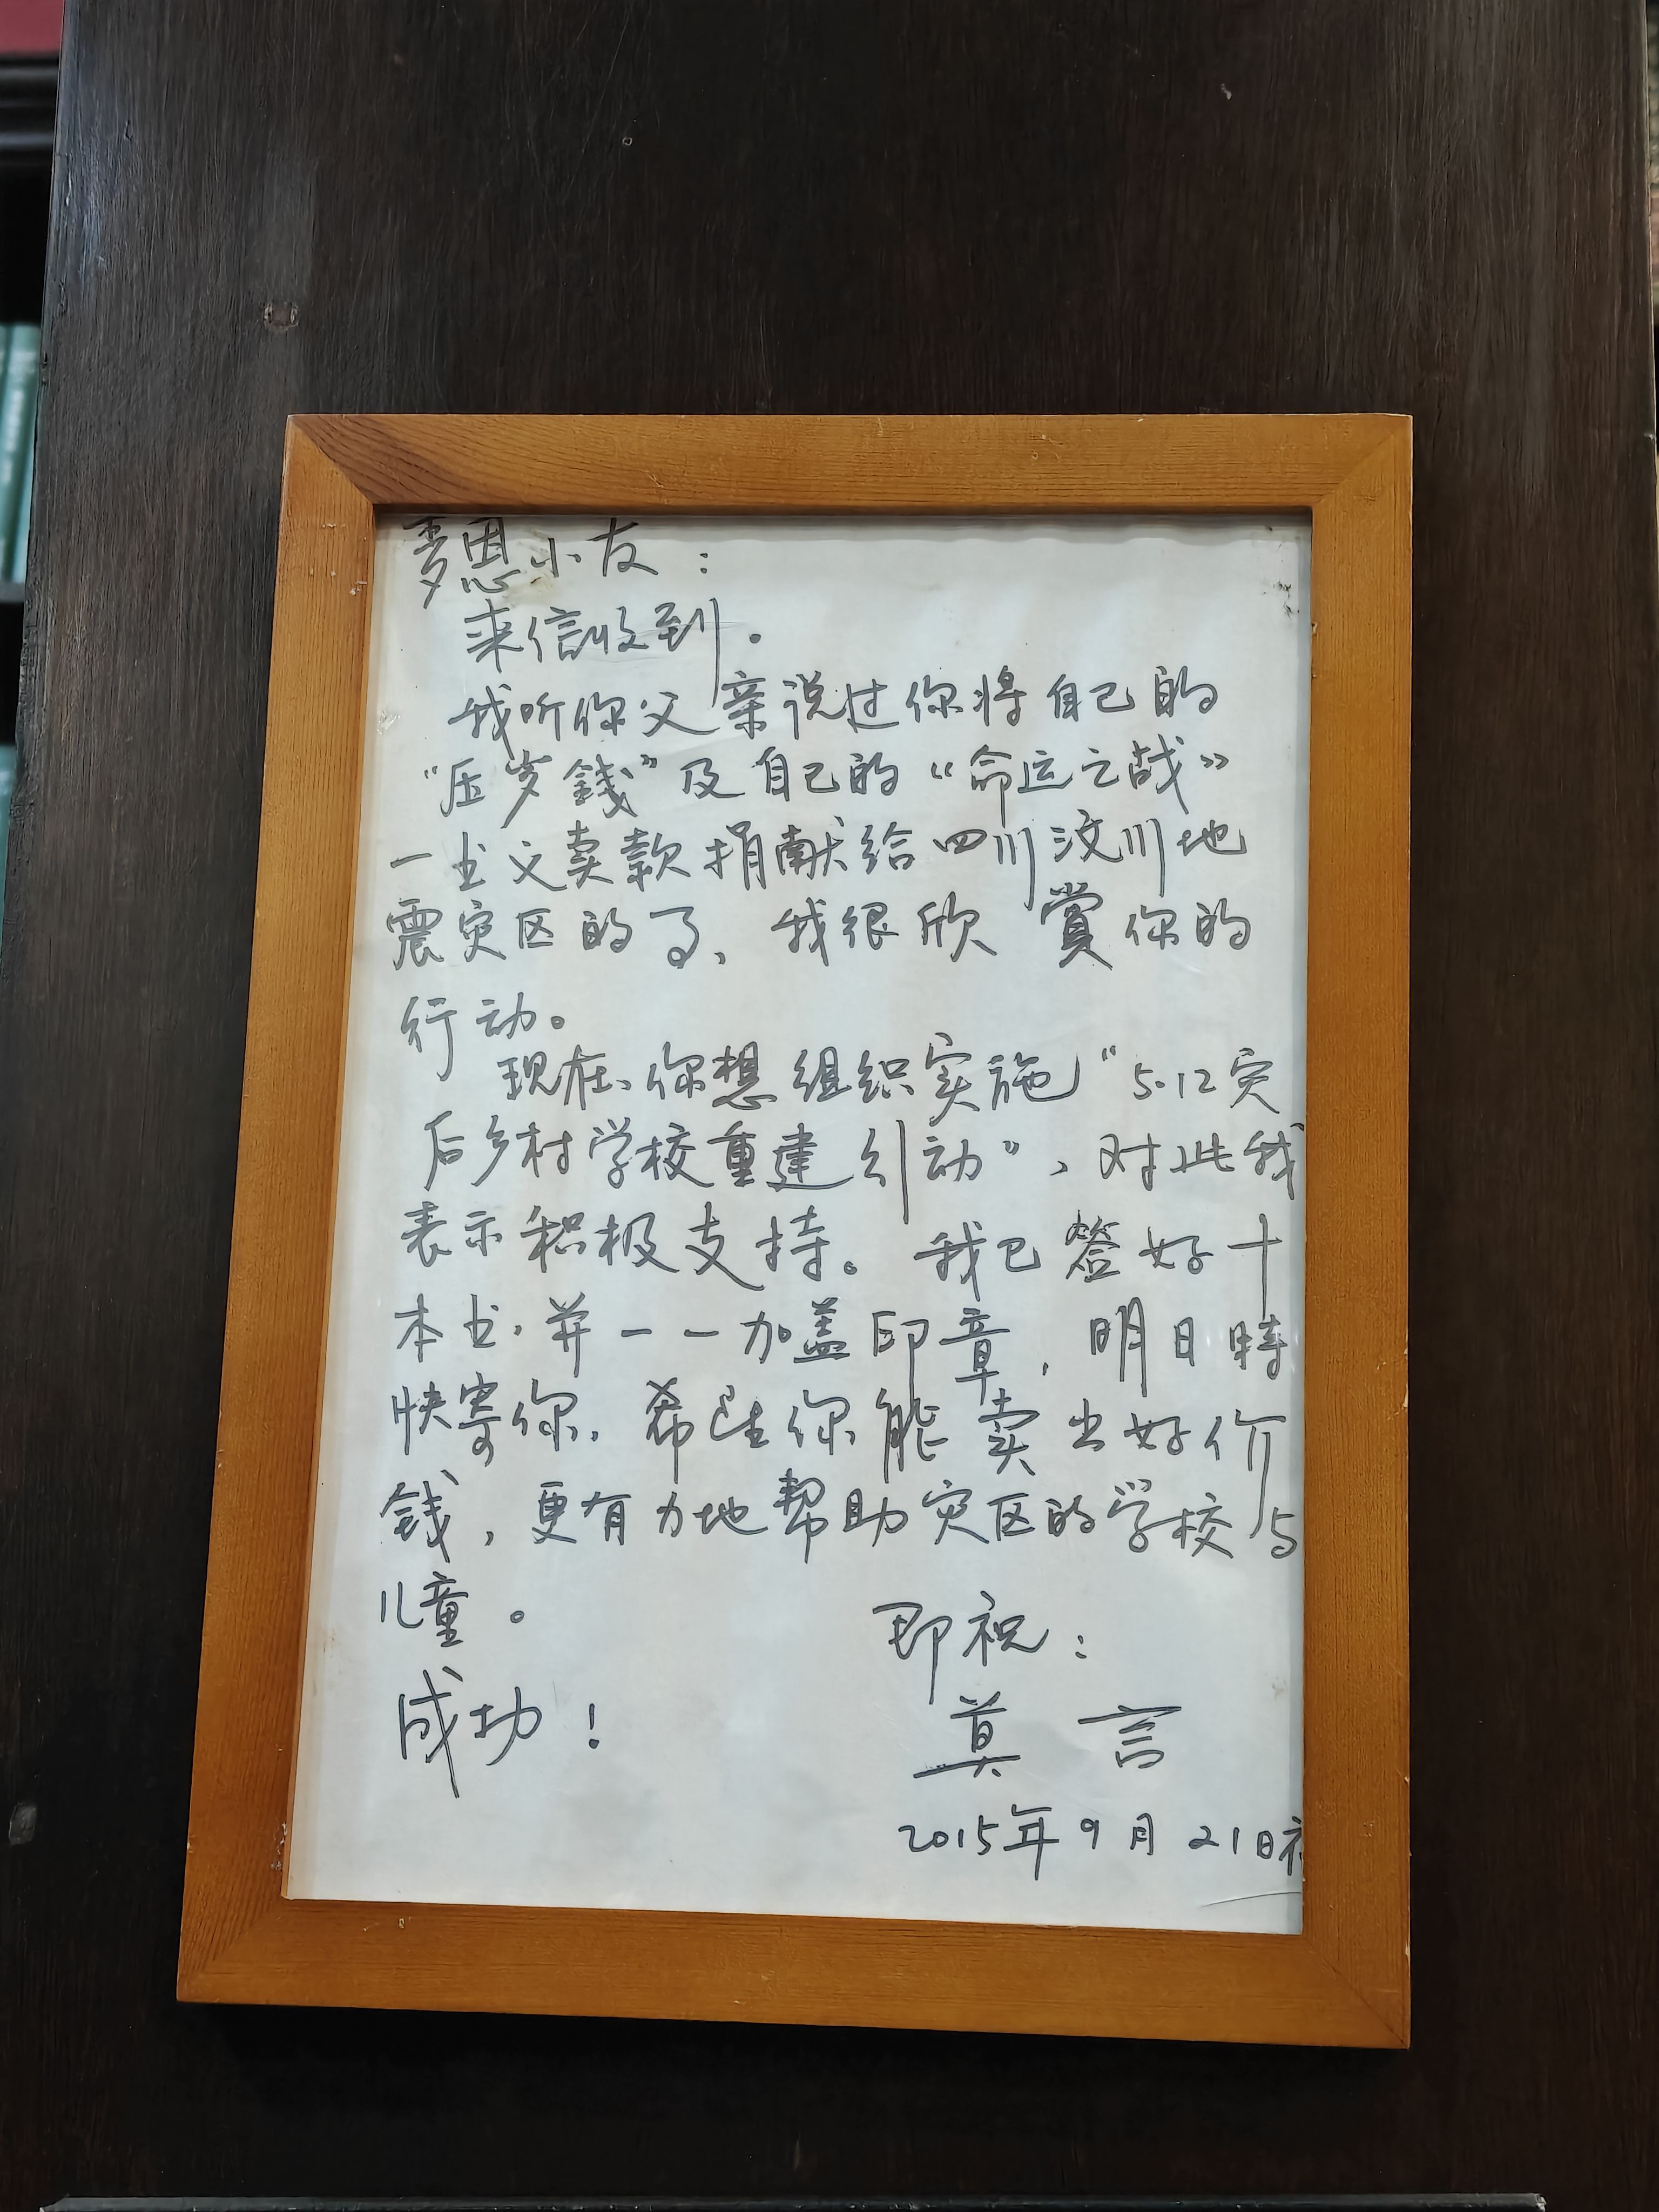 恩小友：
来信收到。
我听你父亲说过你将自己的
“压岁錢”及自己的“命运之战”
一书义卖款捐献给四川汶川地
震灾区的了、我很欣賞你的
行动。
现在、你想组织实施“5.12灾
后乡村学校重建引动”、对此我
表示积极支持。我已签好十
本书，并一一加盖印章，明日時
快寄你，希望你能卖出好价
錢，更有力地帮助灾区的学校与
儿童。
即祝：
成功！
莫言
2015年9月21日